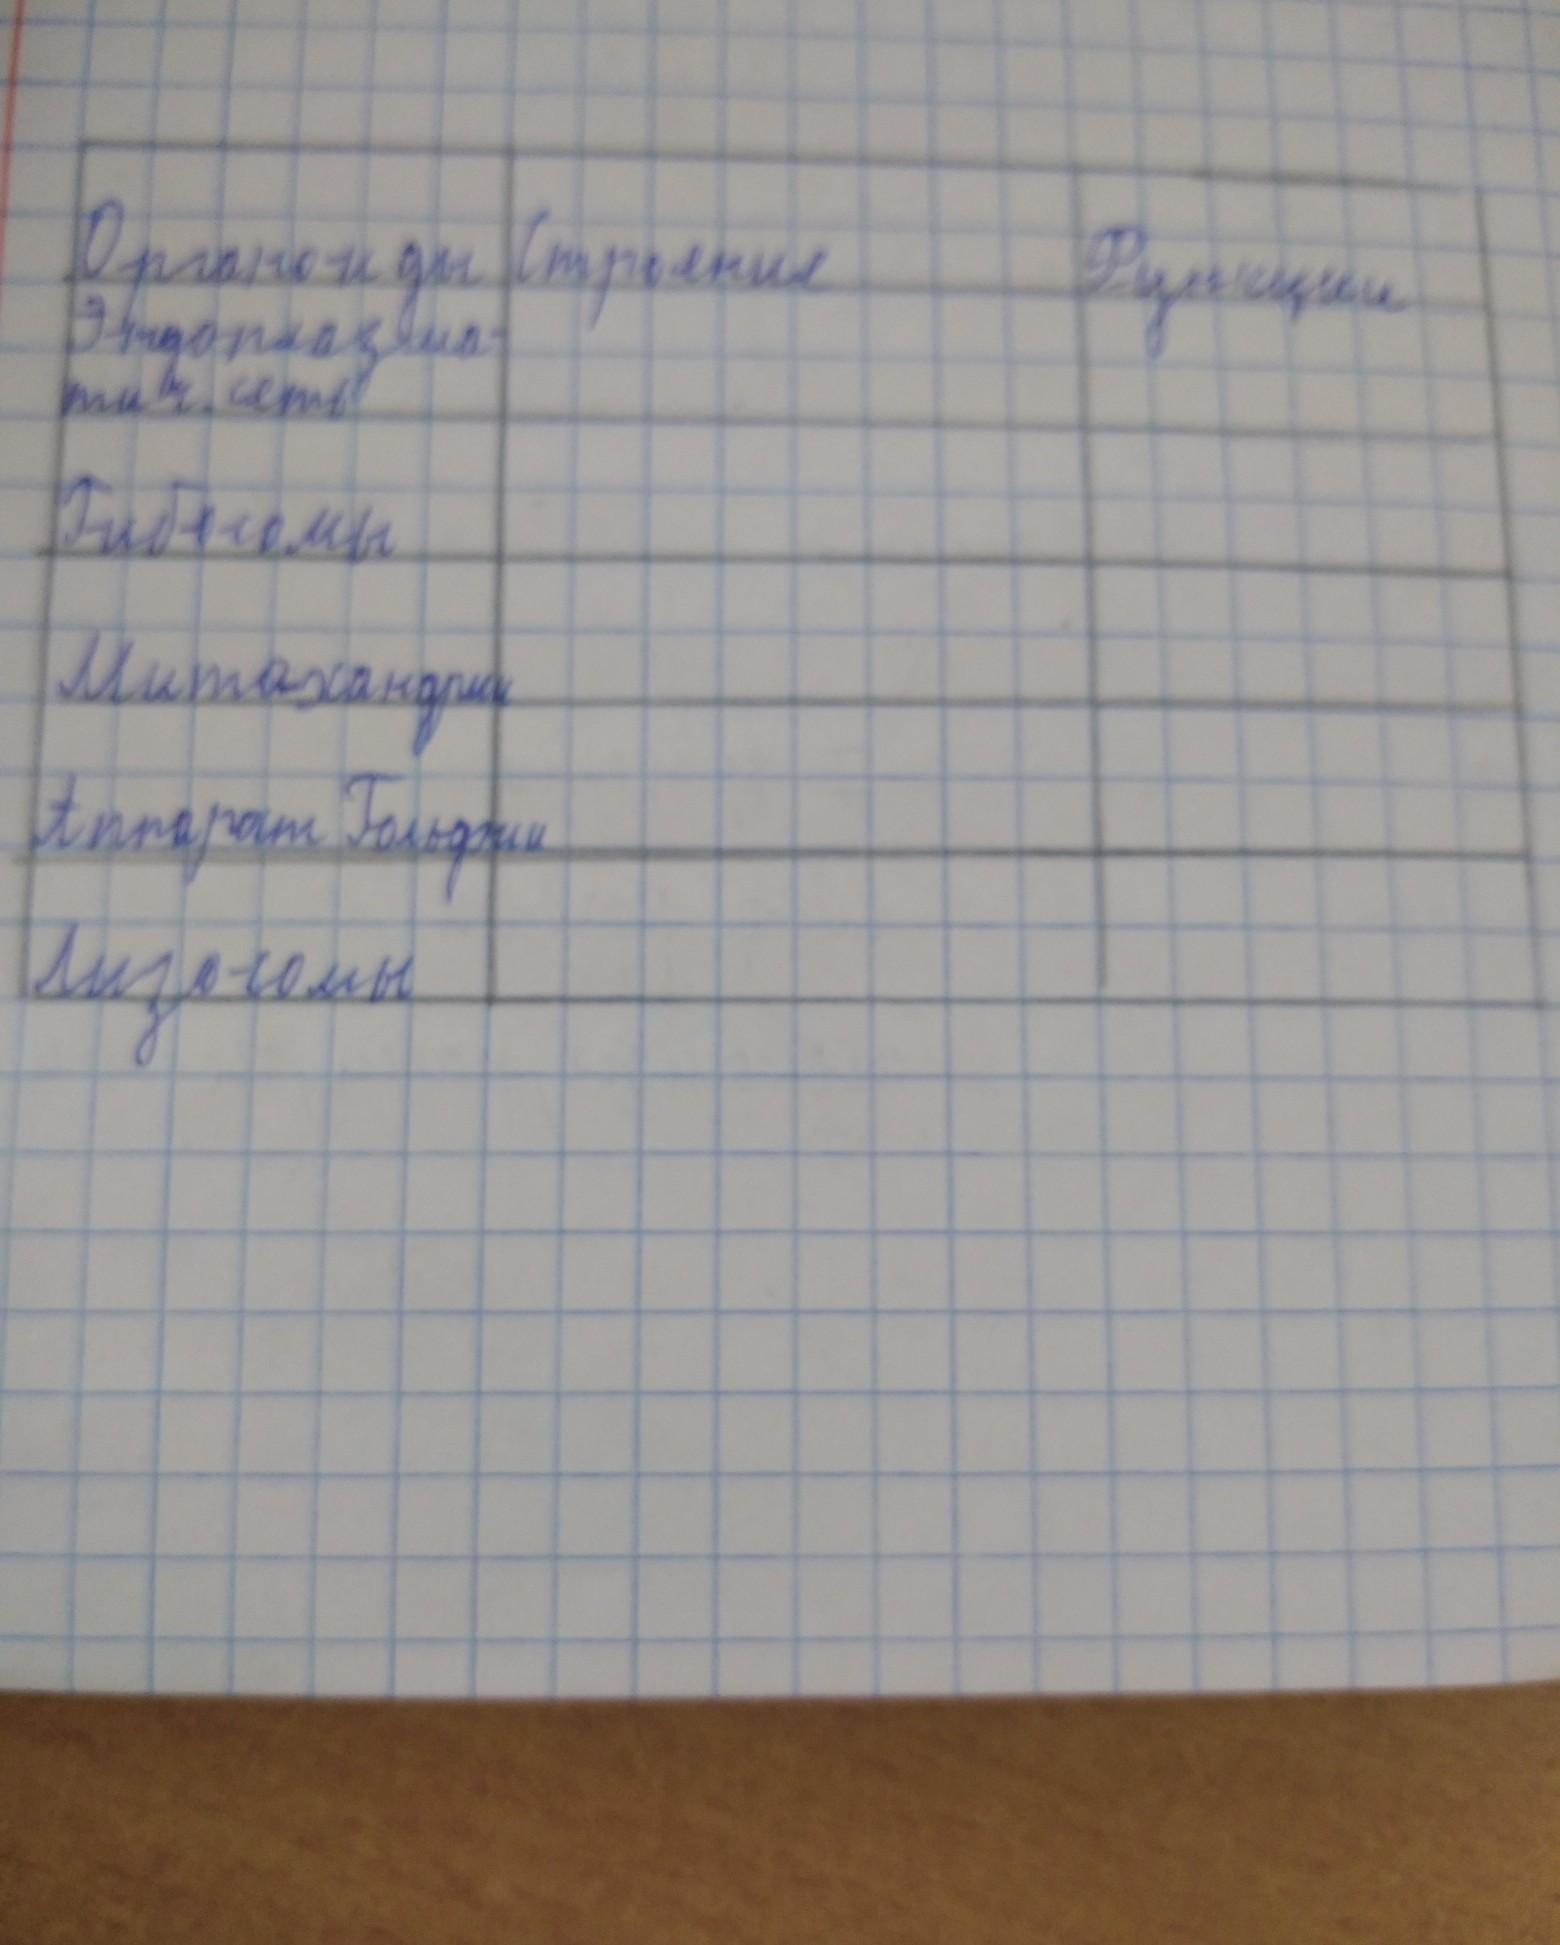 Органоиды Строения Функции
Эндоплазма-
тич. сеть
Рибосомы
Митохандрии
Аппарат Гольджи
Лизосомы